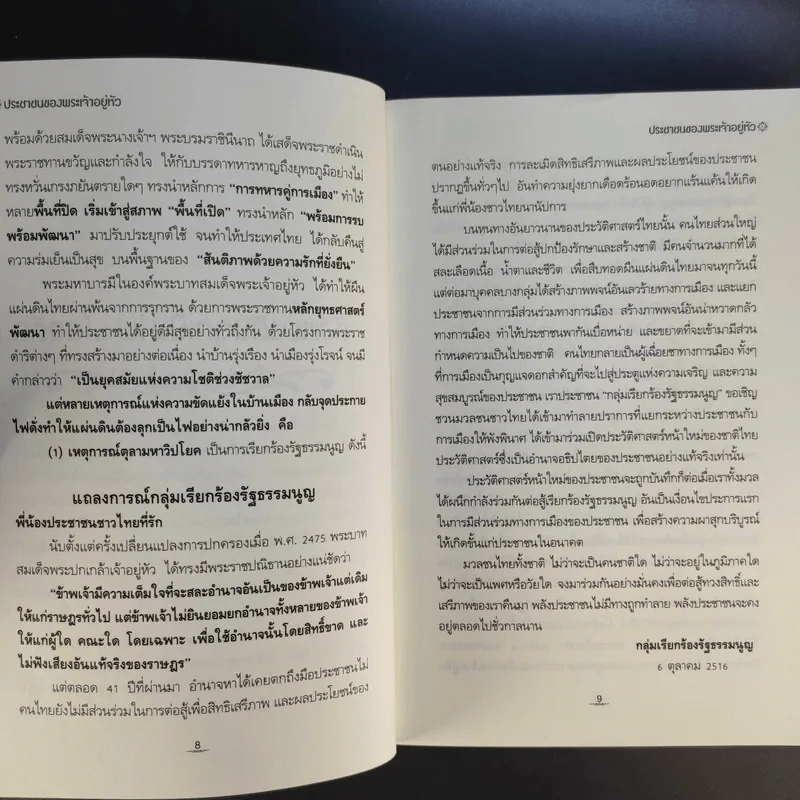 ประชาชนของพระเจ้าอยู่หัว
พร้อมด้วยสมเด็จพระนางเจ้าฯ พระบรมราชินีนาถ ได้เสด็จพระราชดำเนิน
พระราชทานขวัญและกำลังใจ ให้กับบรรดาทหารหาญถึงยุทธภูมิอย่างไม่
ทรงหวั่นเกรงภยันตรายใดๆ ทรงนำหลักการ “การทหารคู่การเมือง” ทำให้
หลายพื้นที่ปิด เริ่มเข้าสู่สภาพ “พื้นที่เปิด” ทรงนำหลัก “พร้อมการรบ
พร้อมพัฒนา” มาปรับประยุกต์ใช้ จนทำให้ประเทศไทย ได้กลับคืนสู่
ความร่มเย็นเป็นสุข บนพื้นฐานของ “สันติภาพด้วยความรักที่ยั่งยืน”
พระมหาบารมีในองค์พระบาทสมเด็จพระเจ้าอยู่หัว ได้ทำให้ผืน
แผ่นดินไทยผ่านพ้นจากการรุกราน ด้วยการพระราชทานหลักยุทธศาสตร์
พัฒนา ทำให้ประชาชนได้อยู่ดีมีสุขอย่างทั่วถึงกัน ด้วยโครงการพระราช
ดำริต่างๆ ที่ทรงสร้างมาอย่างต่อเนื่อง นำบ้านรุ่งเรือง นำเมืองรุ่งโรจน์ จนมี
คำกล่าวว่า “เป็นยุคสมัยแห่งความโชติช่วงชัชวาล”
แต่หลายเหตุการณ์แห่งความขัดแย้งในบ้านเมือง กลับจุดประกาย
ไฟดั่งทำให้แผ่นดินต้องลุกเป็นไฟอย่างน่ากลัวยิ่ง คือ
(1) เหตุการณ์ตุลามหาวิปโยค เป็นการเรียกร้องรัฐธรรมนูญ ดังนี้
แถลงการณ์กลุ่มเรียกร้องรัฐธรรมนูญ
พี่น้องประชาชนชาวไทยที่รัก
นับตั้งแต่ครั้งเปลี่ยนแปลงการปกครองเมื่อ พ.ศ. 2475 พระบาท
สมเด็จพระปกเกล้าเจ้าอยู่หัว ได้ทรงมีพระราชปณิธานอย่างแน่ชัดว่า
“ข้าพเจ้ามีความเต็มใจที่จะสละอำนาจอันเป็นของข้าพเจ้าแต่เดิม
ให้แก่ราษฎรทั่วไป แต่ข้าพเจ้าไม่ยินยอมยกอำนาจทั้งหลายของข้าพเจ้า
ให้แก่ผู้ใด คณะใด โดยเฉพาะ เพื่อใช้อำนาจนั้นโดยสิทธิ์ขาด และ
ไม่ฟังเสียงอันแท้จริงของราษฎร”
แต่ตลอด 41 ปีที่ผ่านมา อำนาจหาได้เคยตกถึงมือประชาชนไม่
คนไทยยังไม่มีส่วนร่วมในการต่อสู้เพื่อสิทธิเสรีภาพ และผลประโยชน์ของ
8
ประชาชนของพระเจ้าอยู่หัว
ตนอย่างแท้จริง การละเมิดสิทธิเสรีภาพและผลประโยชน์ของประชาชน
ปรากฏขึ้นทั่วๆไป อันทำความยุ่งยากเดือดร้อนอดอยากแร้นแค้นให้เกิด
ขึ้นแก่พี่น้องชาวไทยนานัปการ
บนหนทางอันยาวนานของประวัติศาสตร์ไทยนั้น คนไทยส่วนใหญ่
ได้มีส่วนร่วมในการต่อสู้ปกป้องรักษาและสร้างชาติ มีคนจำนวนมากที่ได้
สละเลือดเนื้อ น้ำตาและชีวิต เพื่อสืบทอดผืนแผ่นดินไทยมาจนทุกวันนี้
แต่ต่อมาบุคคลบางกลุ่มได้สร้างภาพพจน์อันเลวร้ายทางการเมือง และแยก
ประชาชนจากการมีส่วนร่วมทางการเมือง สร้างภาพพจน์อันน่าหวาดกลัว
ทางการเมือง ทำให้ประชาชนพากันเบื่อหน่าย และขยาดที่จะเข้ามามีส่วน
กำหนดความเป็นไปของชาติ คนไทยกลายเป็นผู้เฉื่อยชาทางการเมือง ทั้งๆ
ที่การเมืองเป็นกุญแจดอกสำคัญที่จะไปสู่ประตูแห่งความเจริญ และความ
สุขสมบูรณ์ของประชาชน เราประชาชน “กลุ่มเรียกร้องรัฐธรรมนูญ” ขอเชิญ
ชวนมวลชนชาวไทย ได้เข้ามาทำลายปราการที่แยกระหว่างประชาชนกับ
การเมืองให้พังพินาศ ได้เข้ามาร่วมเปิดประวัติศาสตร์หน้าใหม่ของชาติไทย
ประวัติศาสตร์ซึ่งเป็นอำนาจอธิปไตยของประชาชนอย่างแท้จริงเท่านั้น
ประวัติศาสตร์หน้าใหม่ของประชาชนจะถูกบันทึกก็ต่อเมื่อเราทั้งมวล
ได้ผนึกกำลังร่วมกันต่อสู้เรียกร้องรัฐธรรมนูญ อันเป็นเงื่อนไขประการแรก
ในการมีส่วนร่วมทางการเมืองของประชาชน เพื่อสร้างความผาสุกบริบูรณ์
ให้เกิดขึ้นแก่ประชาชนในอนาคต
มวลชนไทยทั้งชาติ ไม่ว่าจะเป็นคนชาติใด ไม่ว่าจะอยู่ในภูมิภาคใด
ไม่ว่าจะเป็นเพศหรือวัยใด จงมาร่วมกันอย่างมั่นคงเพื่อต่อสู้ทวงสิทธิ์และ
เสรีภาพของเราคืนมา พลังประชาชนไม่มีทางถูกทำลาย พลังประชาชนจะคง
อยู่ตลอดไปชั่วกาลนาน
กลุ่มเรียกร้องรัฐธรรมนูญ
6 ตุลาคม 2516
9